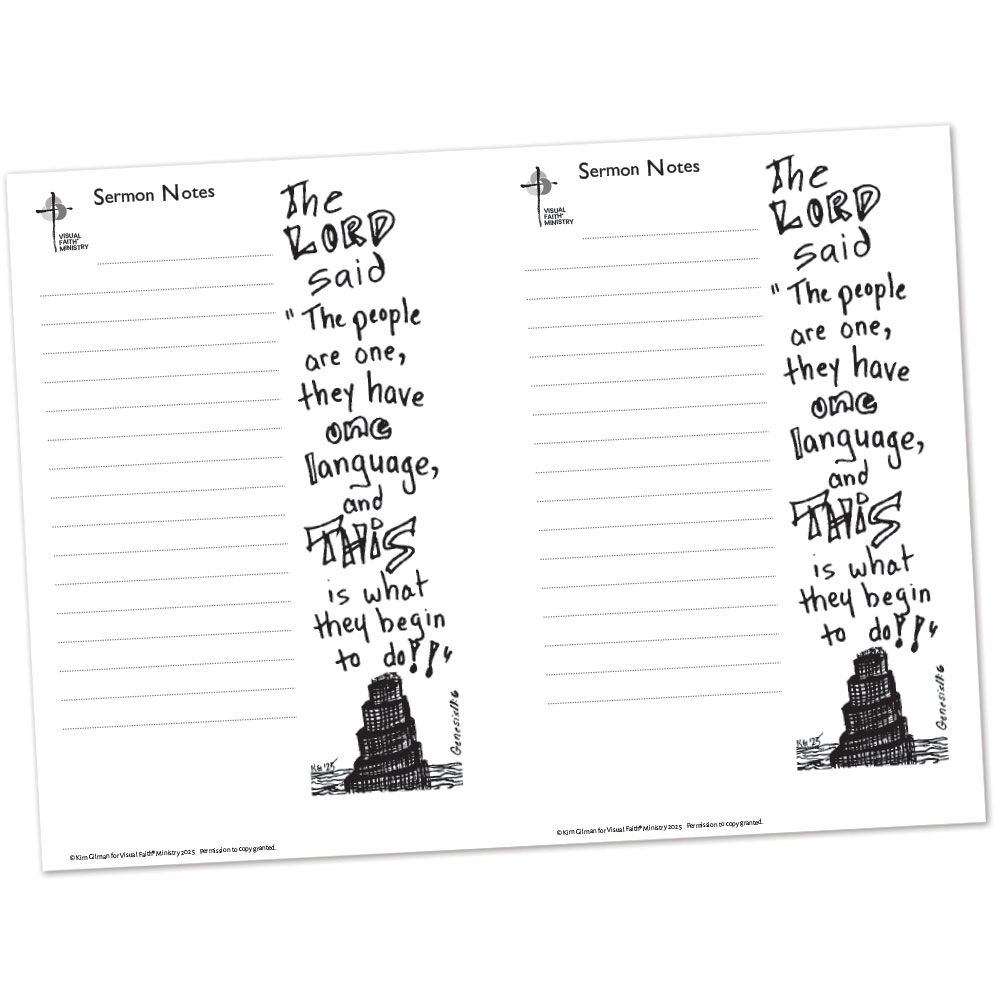 Sermon Notes
VISUAL
FAITH®
MINISTRY
The
LORD
said
"The people
are one,
they have
one
language,
and
THiS
is what
they begin
to do!!"
Genesis 11:6
KG '25
© Kim Gilman for Visual Faith® Ministry 2025 Permission to copy granted.
Sermon Notes
VISUAL
FAITH®
MINISTRY
The
LORD
said
"The people
are one,
they have
one
language,
and
THiS
is what
they begin
to do!!"
Genesis 11:6
KG '25
© Kim Gilman for Visual Faith® Ministry 2025 Permission to copy granted.